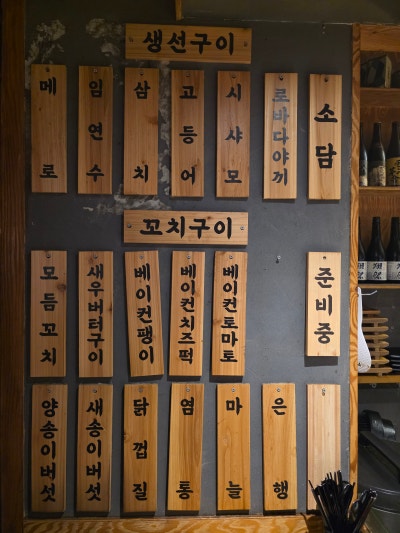 생선구이
메로
임연수
삼치
고등어
시샤모
로바다야끼
소담
꼬치구이
모듬꼬치
새우버터구이
베이컨팽이
베이컨치즈떡
베이컨토마토
준비중
양송이버섯
새송이버섯
닭껍질
염통
마늘
은행